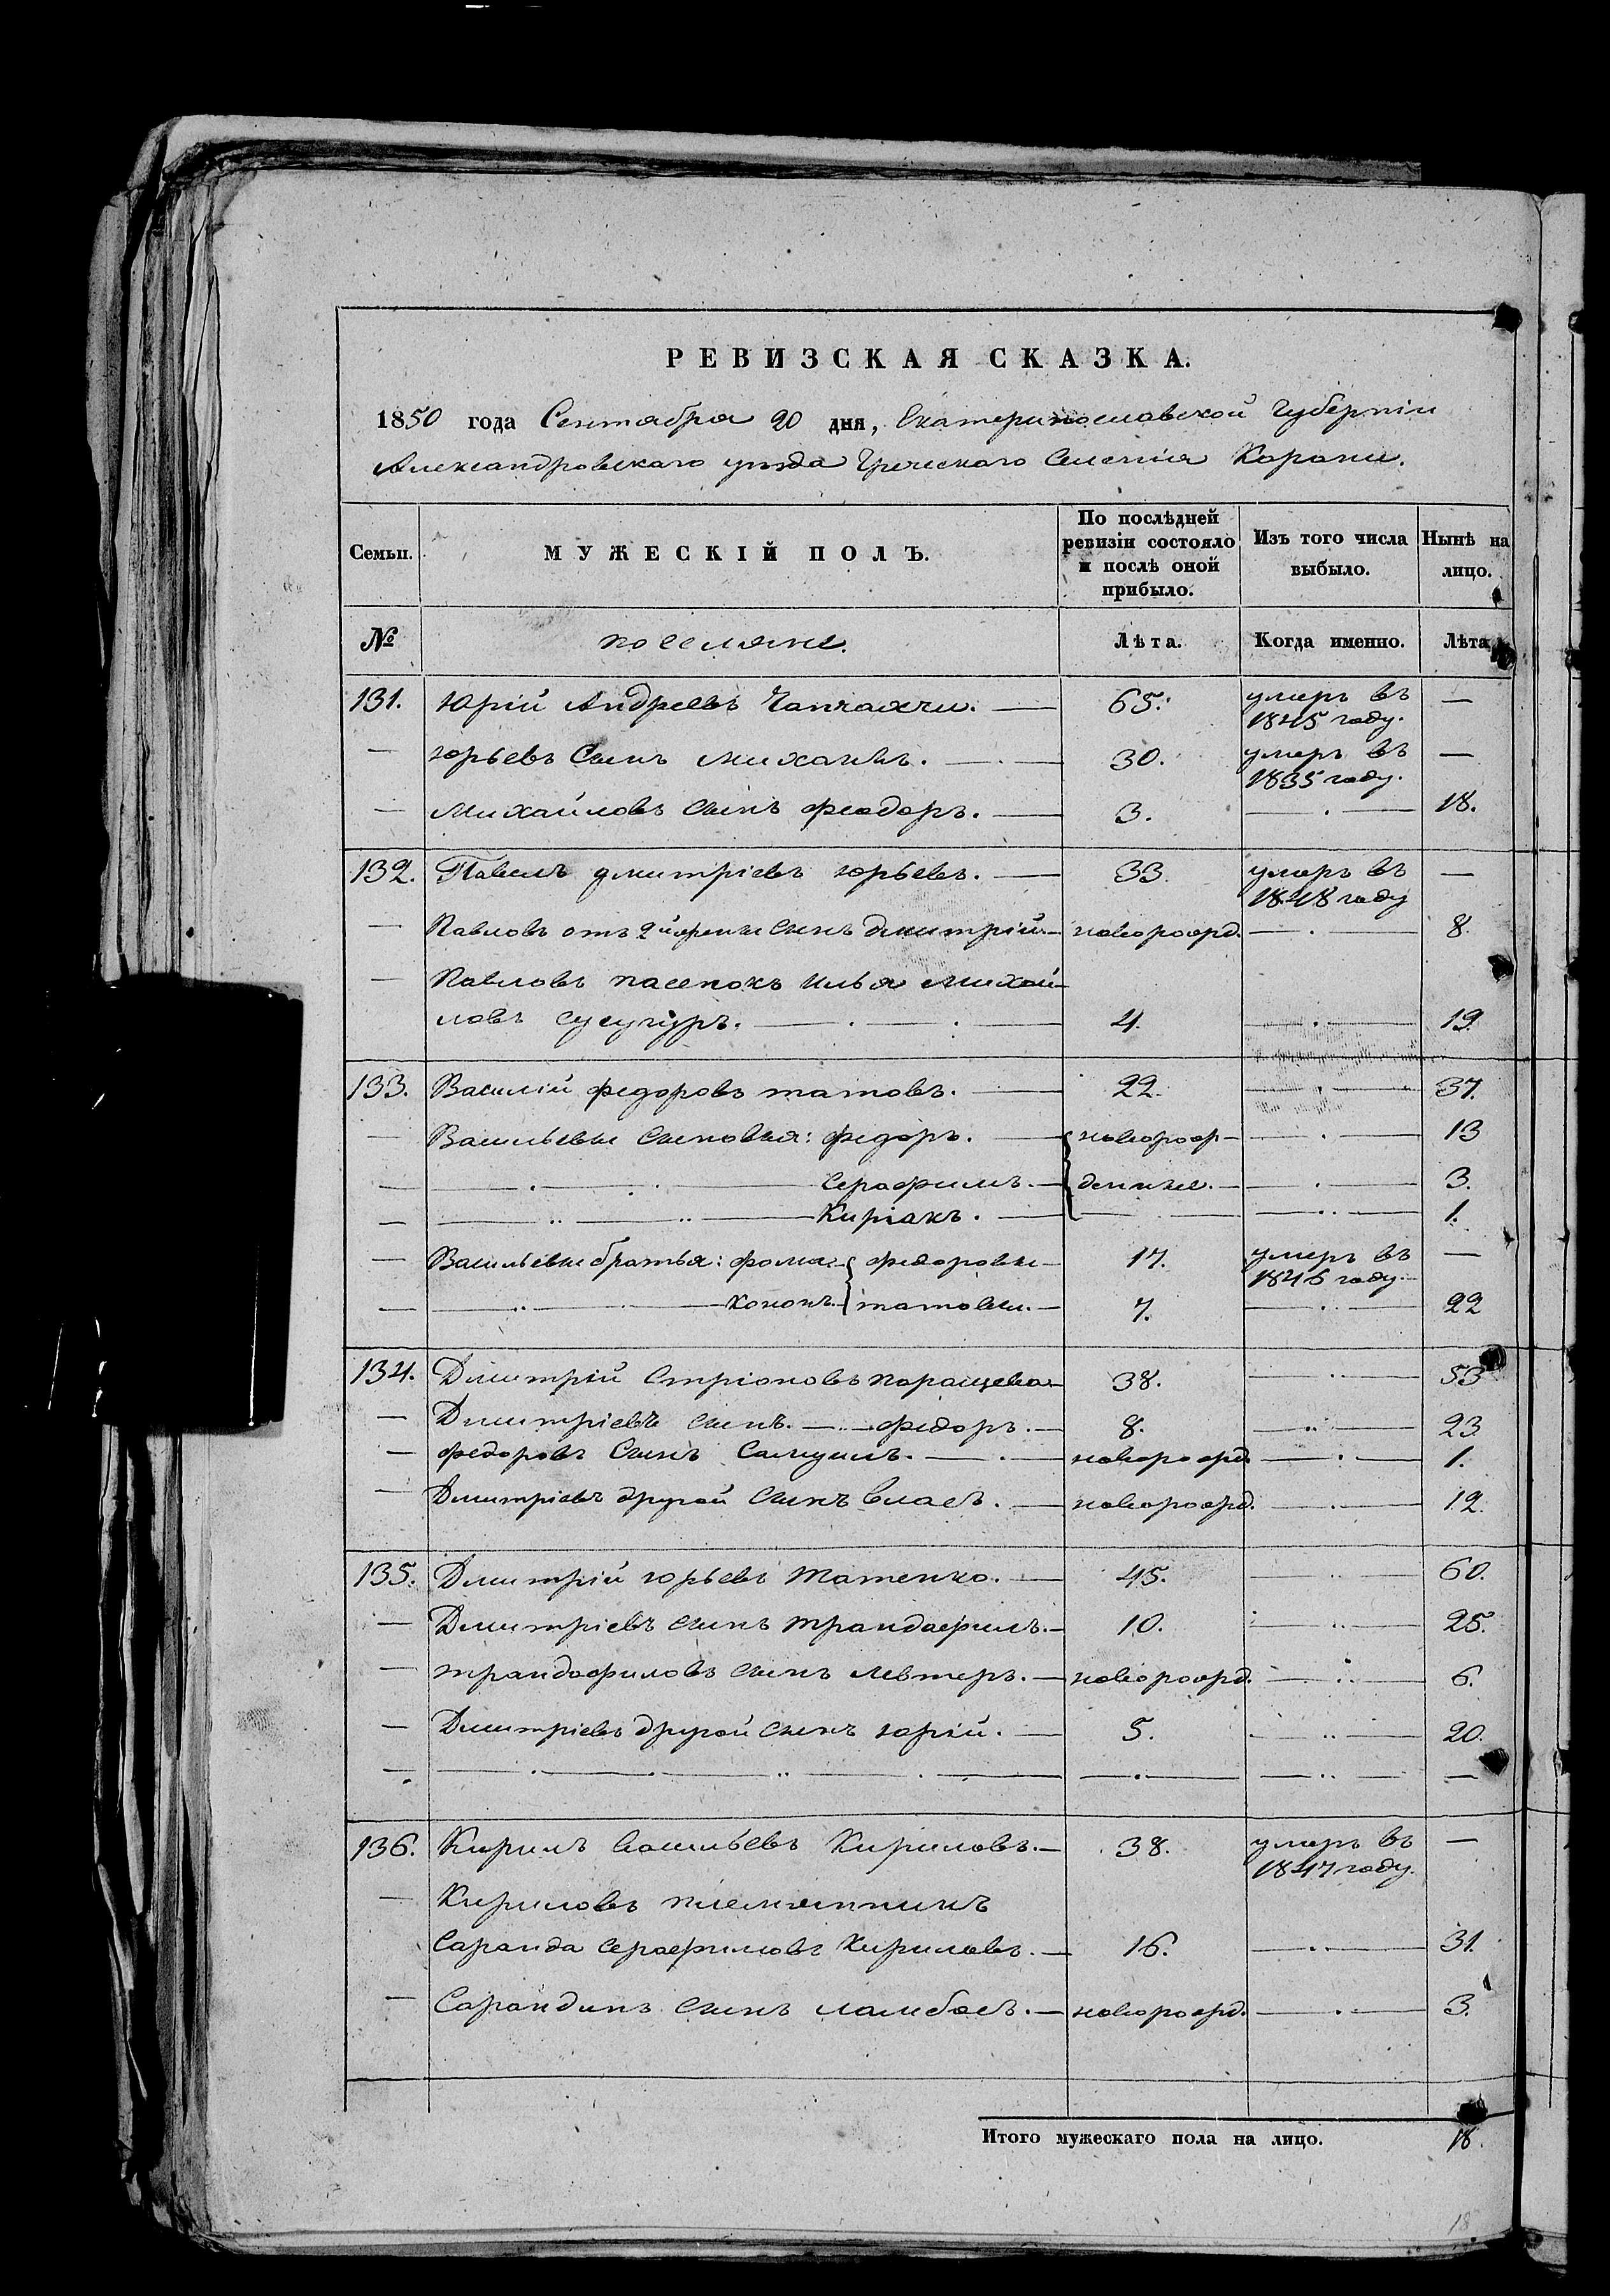 РЕВИЗСКАЯ СКАЗКА.
1850 года Сентября 20 дня, Екатеринославской Губерніи
Александровскаго уѣзда Греческаго Селенія Карани.
Семьи. МУЖЕСКІЙ ПОЛЪ. По послѣдней ревизіи состояло и послѣ оной прибыло. Изъ того числа выбыло. Нынѣ на лицо.
№ поселяне. Лѣта. Когда именно. Лѣта
131. Юрій Андреевъ Чапчахчи. — 65. умеръ въ 1845 году. —
— Юрьевъ Сынъ Михаилъ. — 30. умеръ въ 1835 году. —
— Михайловъ сынъ Феодоръ. — 3. — 18.
132. Павелъ Дмитріевъ Юрьевъ. — 33. умеръ въ 1848 году —
— Павловъ отъ 2й жены сынъ Дмитрій — новорожд. — 8.
— Павловъ пасенокъ Илья Михай-
ловъ Сусучуръ. — 4. — 19.
133. Василій Федоровъ Татовъ. — 22. — 37.
— Васильевы сыновья: Федоръ. — новорож- — 13
— — Серафимъ. — денные. — 3.
— — Киріакъ. — — 1.
— Васильевы братья: Фома Федоровы — 17. умеръ въ 1846 году. —
— — Кононъ. Татовы. — 7. — 22
134. Дмитрій Стріоновъ Паращева — 38. — 53
— Дмитріевъ сынъ. — Федоръ. — 8. — 23
— Федоровъ Сынъ Самуилъ. — новорожд. — 1.
— Дмитріевъ другой сынъ Власъ. — новорожд. — 12.
135. Дмитрій Юрьевъ Татенко. — 45. — 60.
— Дмитріевъ сынъ Трандафилъ. — 10. — 25.
— Трандафиловъ сынъ Левтеръ. — новорожд. — 6.
— Дмитріевъ другой сынъ Юрій. — 5. — 20.
— — — — —
136. Кирилъ Васильевъ Кириловъ. — 38. умеръ въ 1847 году. —
— Кириловъ племянникъ
Саранда Серафимовъ Кириловъ. — 16. — 31.
— Сарандинъ сынъ Ламбосъ. — новорожд. — 3.
Итого мужескаго пола на лицо. 18.
18